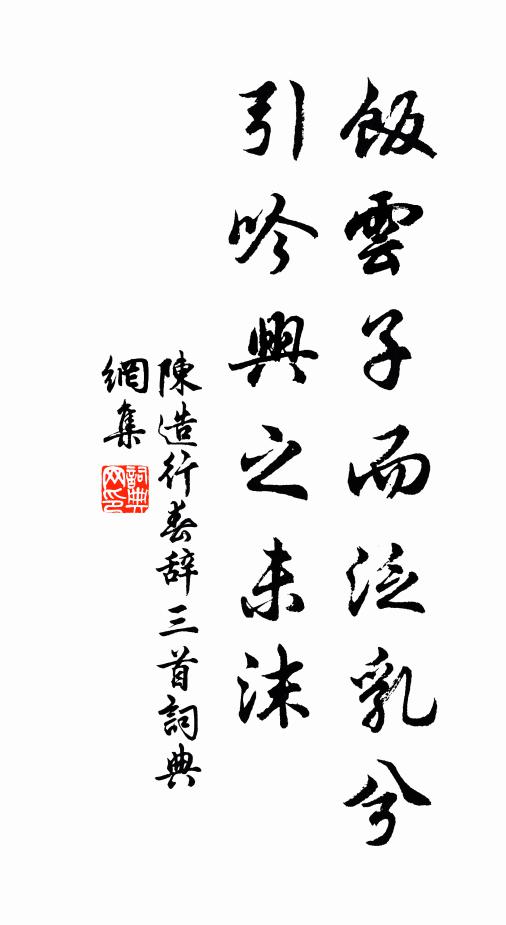 飯雲子而泛乳兮
引吟興之未沫
陳造行春辞三首詞典
網集
詞典網印